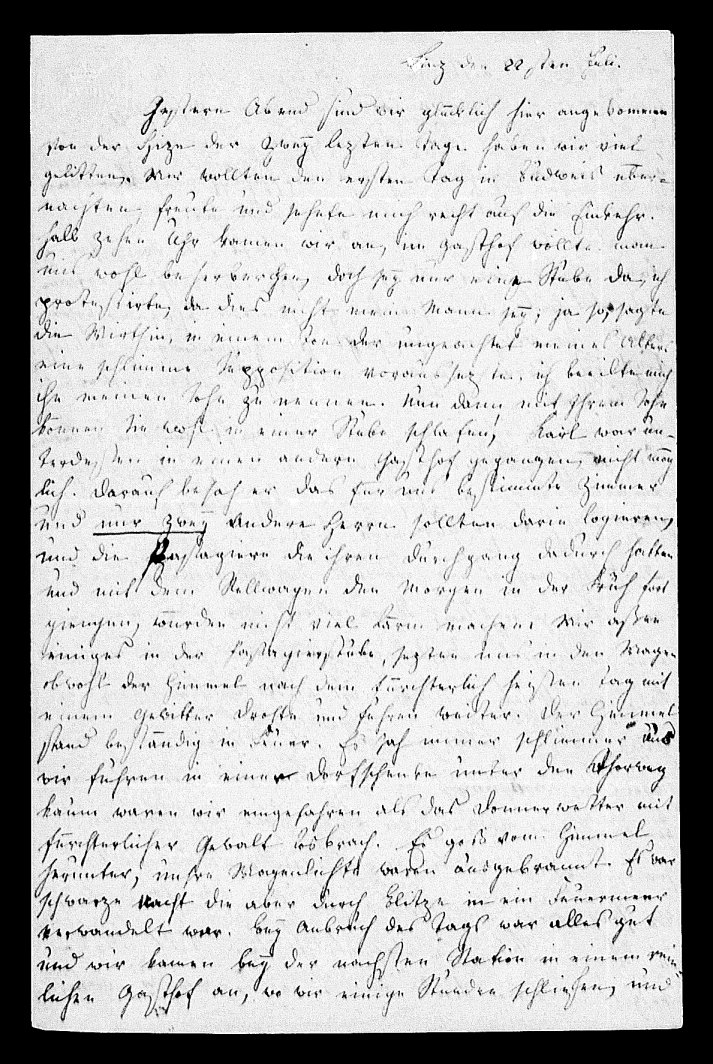 Linz den 22sten Juli.
Gestern Abend sind wir glücklich hier angekommen
von der Hize der zwey lezten Tage haben wir viel
gelitten. Wir wollten den ersten Tag in Budweis über-
nachten, freute und sehnte mich recht auf die Einkehr.
halb zehen Uhr kamen wir an, im Gasthof wollte man
uns wohl beherbergen, doch sey nur eine Stube da, ich
protestirte, da dies nicht mein Mann sey; ja so, sagte
die Wirthin, in einem Ton der ungeachtet meines Alters
eine schlimme Supposition voraussezte, ich beeilte mich
ihn meinen Sohn zu nennen. Nun dann mit Ihrem Sohn
können Sie wohl in einer Stube schlafen! Karl war un-
terdessen in einen andern Gasthof gegangen, nicht mög-
lich. Darauf besah er das für uns bestimmte Zimmer
und nur zwey andere Herrn sollten darin logieren,
und die Passagiere die ihren Durchgang dadurch hatten
und mit dem Stellwagen den Morgen in der Früh fort
giengen, würden nicht viel Lärm machen. Wir assen
einiges in der Passagierstube, sezten uns in den Wagen
obwohl der Himmel nach dem fürchterlich heissen Tag mit
einem Gewitter drohte und fuhren weiter. Der Himmel
stand beständig in Feuer. Es sah immer schlimmer aus
wir fuhren in einer Dorfschenke unter den Thorweg
kaum waren wir eingefahren als das Donnerwetter mit
fürchterlicher Gewalt losbrach. Es goss vom Himmel
herunter, unsre Wagenlichte waren ausgebrannt. Es war
schwarze Nacht die aber durch Blitze in ein Feuermeer
verwandelt war. Bey Anbruch des Tags war alles gut
und wir kamen bey der nächsten Station in einem rein-
lichen Gasthof an, wo wir einige Stunden schliefen, und